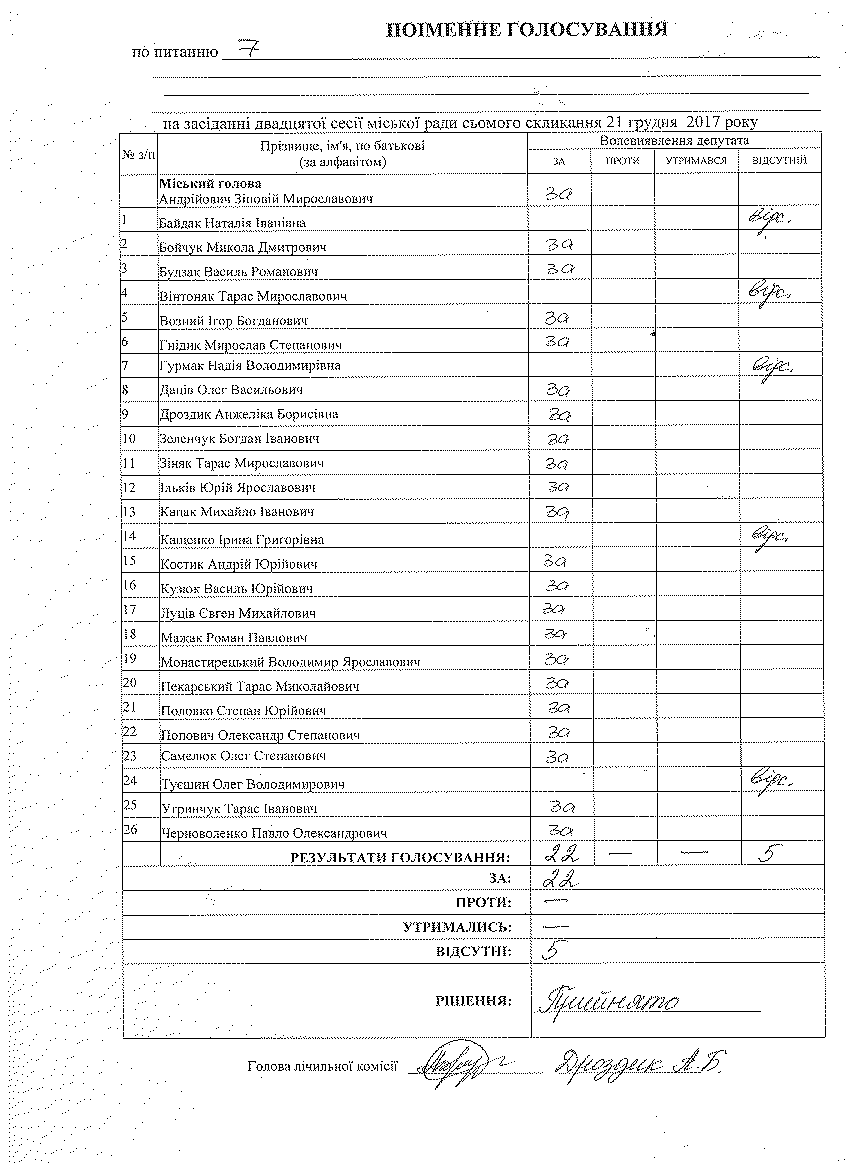 ПОІМЕННЕ ГОЛОСУВАННЯ
по питанню 7
на засіданні двадцятої сесії міської ради сьомого скликання 21 грудня 2017 року
№ з/п Прізвище, ім'я, по батькові (за алфавітом) Волевиявлення депутата
ЗА ПРОТИ УТРИМАВСЯ ВІДСУТНІЙ
Міський голова
Андрійович Зіновій Мирославович за
1 Байдак Наталія Іванівна відс.
2 Бойчук Микола Дмитрович за
3 Будзак Василь Романович за
4 Вінтоняк Тарас Мирославович відс.
5 Возний Ігор Богданович за
6 Гнідик Мирослав Степанович за
7 Гурмак Надія Володимирівна відс.
8 Даців Олег Васильович за
9 Дроздик Анжеліка Борисівна за
10 Зеленчук Богдан Іванович за
11 Зіняк Тарас Мирославович за
12 Ільків Юрій Ярославович за
13 Кацак Михайло Іванович за
14 Кащенко Ірина Григорівна відс.
15 Костик Андрій Юрійович за
16 Кузюк Василь Юрійович за
17 Луців Євген Михайлович за
18 Мажак Роман Павлович за
19 Монастирецький Володимир Ярославович за
20 Пекарський Тарас Миколайович за
21 Половко Степан Юрійович за
22 Попович Олександр Степанович за
23 Самелюк Олег Степанович за
24 Туєшин Олег Володимирович відс.
25 Угринчук Тарас Іванович за
26 Черноволенко Павло Олександрович за
РЕЗУЛЬТАТИ ГОЛОСУВАННЯ: 22 — — 5
ЗА: 22
ПРОТИ: —
УТРИМАЛИСЬ: —
ВІДСУТНІ: 5
РІШЕННЯ: Прийнято
Голова лічильної комісії Дроздик А.Б.